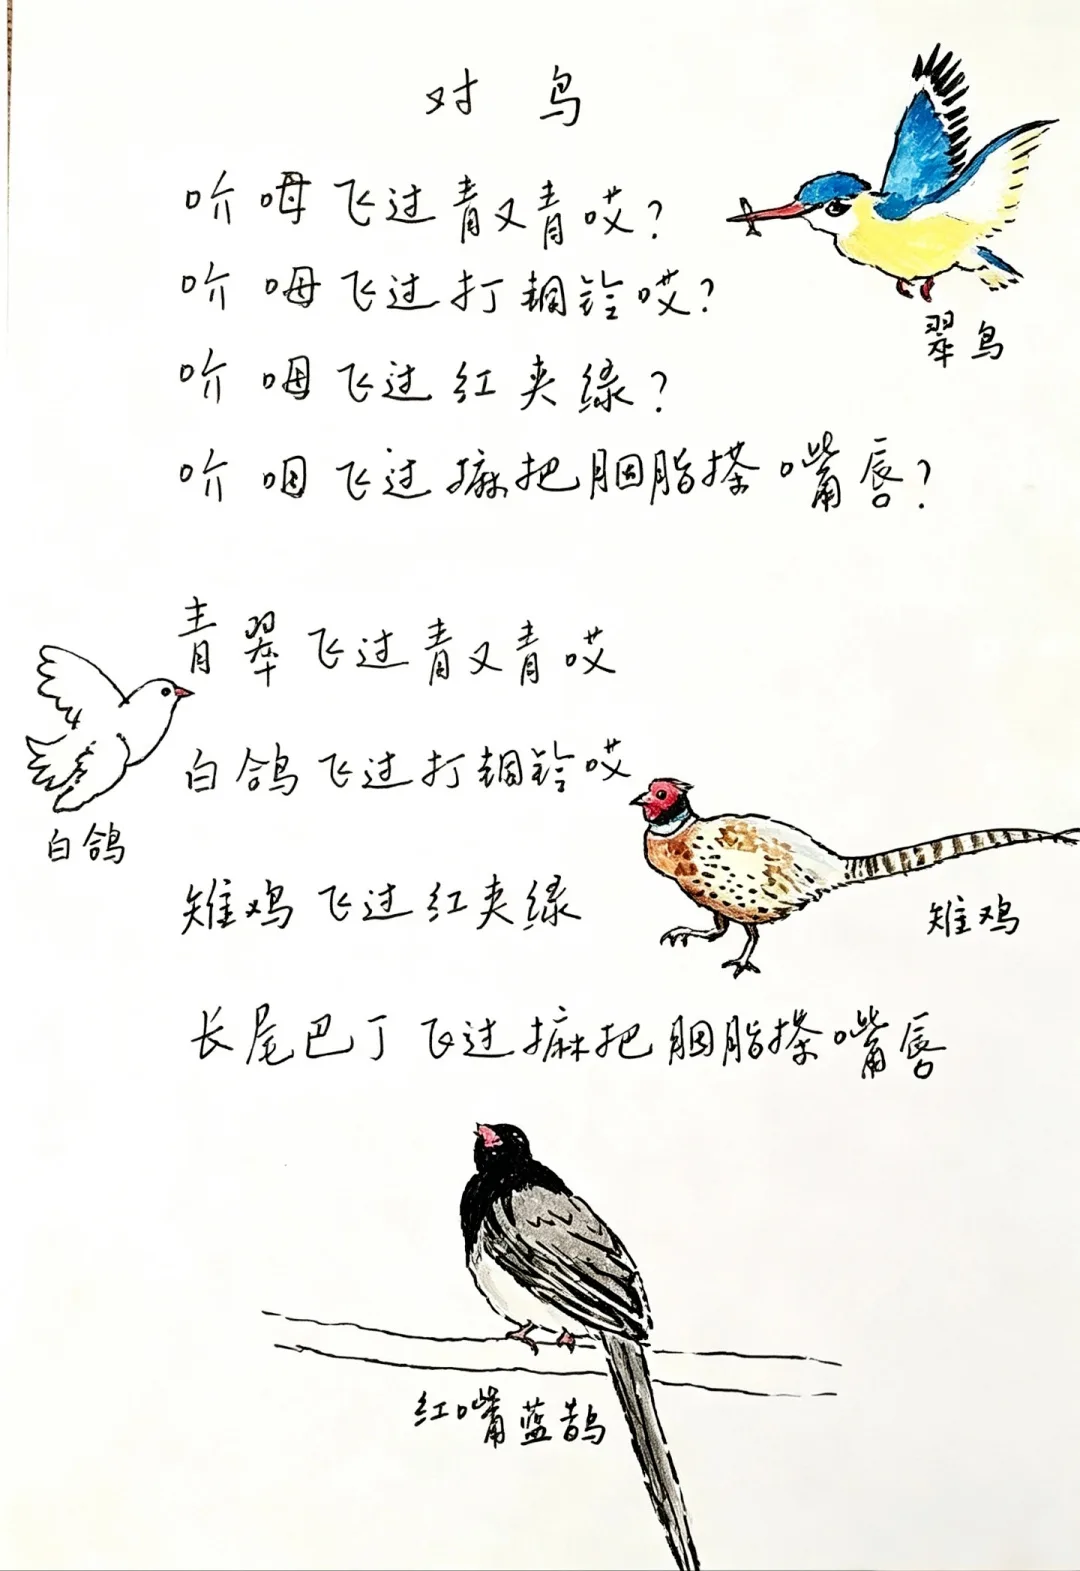 对鸟
吤呣飞过青又青哎？
吤呣飞过打铜铃哎？
翠鸟
吤呣飞过红夹绿？
吤呣飞过把胭脂搽嘴唇？
青翠飞过青又青哎
白鸽飞过打铜铃哎
白鸽
雉鸡飞过红夹绿
雉鸡
长尾巴丁飞过把胭脂搽嘴唇
红嘴蓝鹊